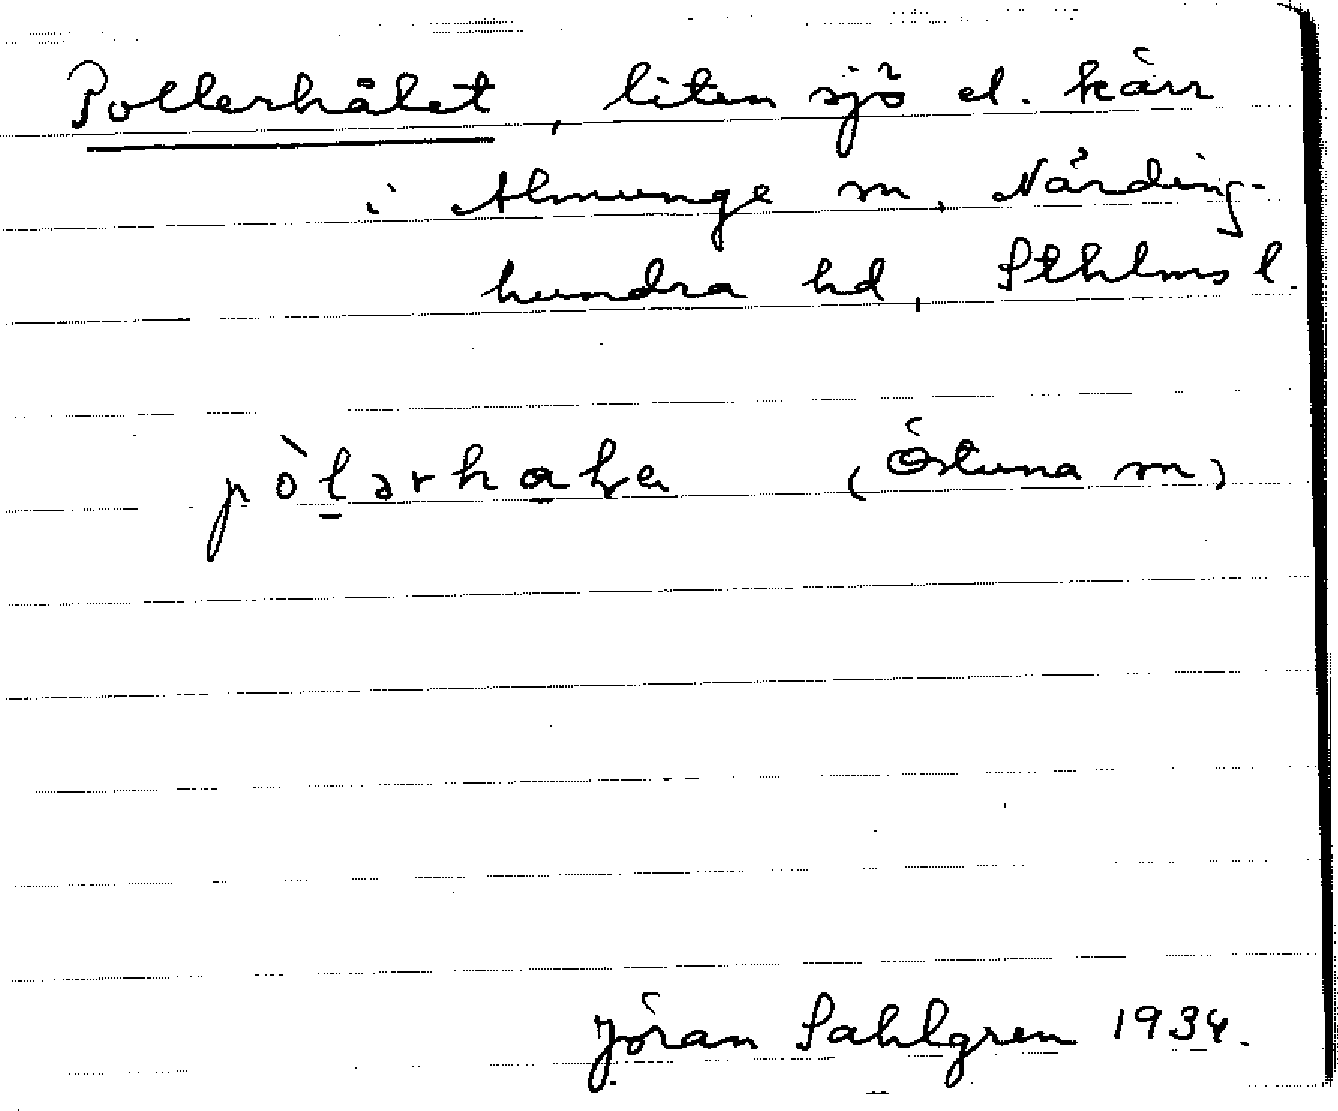 Pollerhålet, liten sjö el. kärr
i Almunge sn, Närding-
hundra hd, Sthlms l.
(Östuna sn)
Jöran Sahlgren 1934.